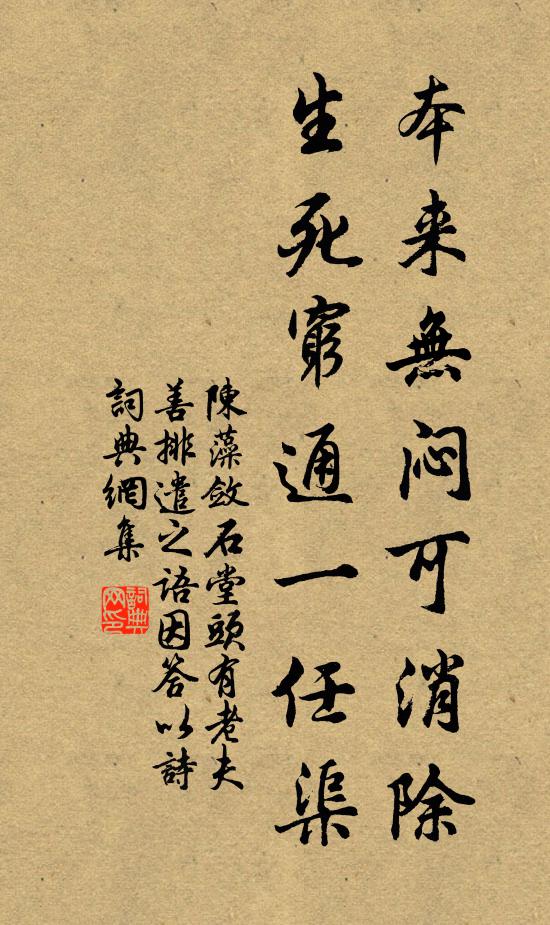 本来無闷可消除
生死窮通一任渠
陳藻敛石堂頭有老夫
善排遣之语因答以詩
詞典網集
詞典
网印